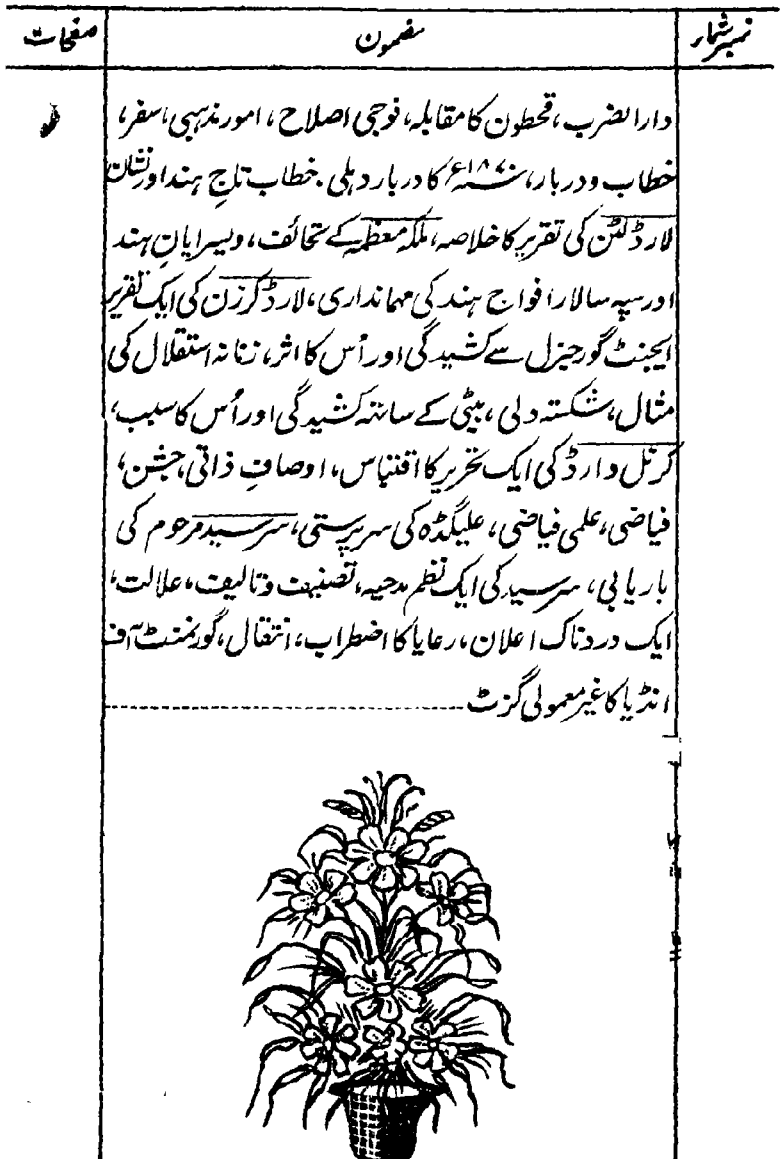 نمبر شمار مضمون صفحات
دارالضرب، قحطون کا مقابلہ، فوجی اصلاح، امور مذہبی، سفر،
خطاب و دربار، سنہ ۱۸۷۰ء کا دربار دہلی، خطاب تاج ہند اور نشان
لارڈ لٹن کی تقریر کا خلاصہ، ملکہ معظمہ کے تحائف، ویسرایانِ ہند
اور سپہ سالار افواج ہند کی مہانداری، لارڈ کرزن کی ایک تقریر
ایجنٹ گورجنرل سے کشیدگی اور اُس کا اثر، زنانہ استقلال کی
مثال، شکستہ دلی، بیٹی کے ساتہ کشیدگی اور اُس کا سبب،
کرنل وارڈ کی ایک تحریر کا اقتباس، اوصافِ ذاتی، جشن،
فیاضی، علمی فیاضی، علیگڈہ کی سرپرستی، سرسید مرحوم کی
باریابی، سرسید کی ایک نظم مدحیہ، تصنیف و تالیف، علالت،
ایک دردناک اعلان، رعایا کا اضطراب، انتقال، گورنمنٹ آف
انڈیا کا غیر معمولی گزٹ